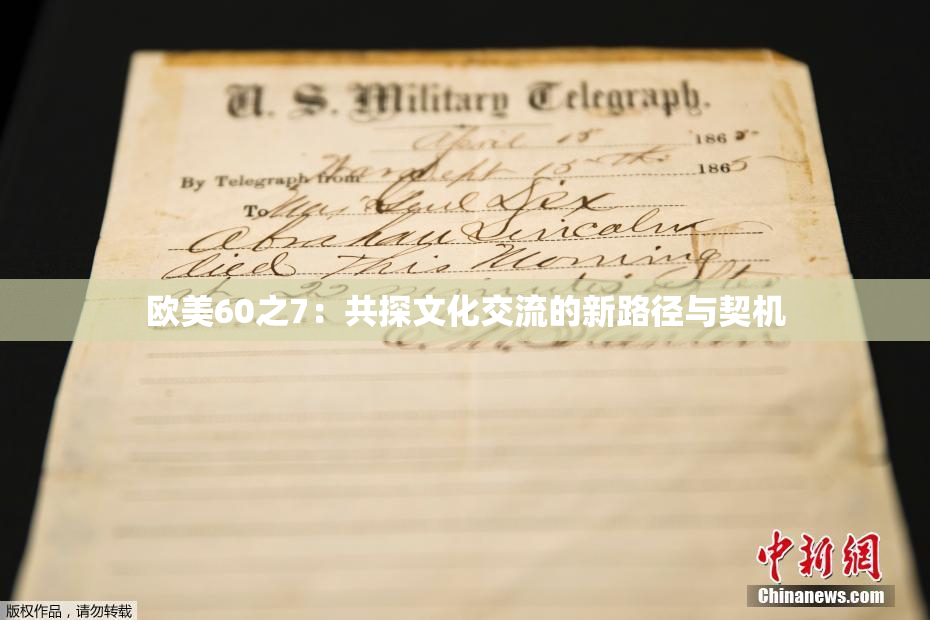 U. S. Military Telegraph.
April 15 1865
By Telegraph from War Dept 15th 1865
To Maj Genl Dix
Abraham Lincoln
died This Morning
at 22 minutes after
欧美60之7：共探文化交流的新路径与契机
E. M. Stanton
中新网
Chinanews.com
版权作品，请勿转载